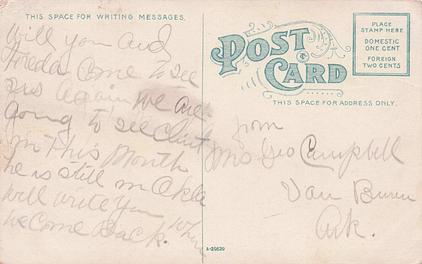 THIS SPACE FOR WRITING MESSAGES.
Will you and
Freda Come to see
us again We are
going to see Clint
in This Month
he is still in Okla
will write you when
we Come Back.
POST
CARD
THIS SPACE FOR ADDRESS ONLY.
PLACE
STAMP HERE
DOMESTIC
ONE CENT
FOREIGN
TWO CENTS
from
Mrs Geo Campbell
Van Buren
Ark.
A-29629